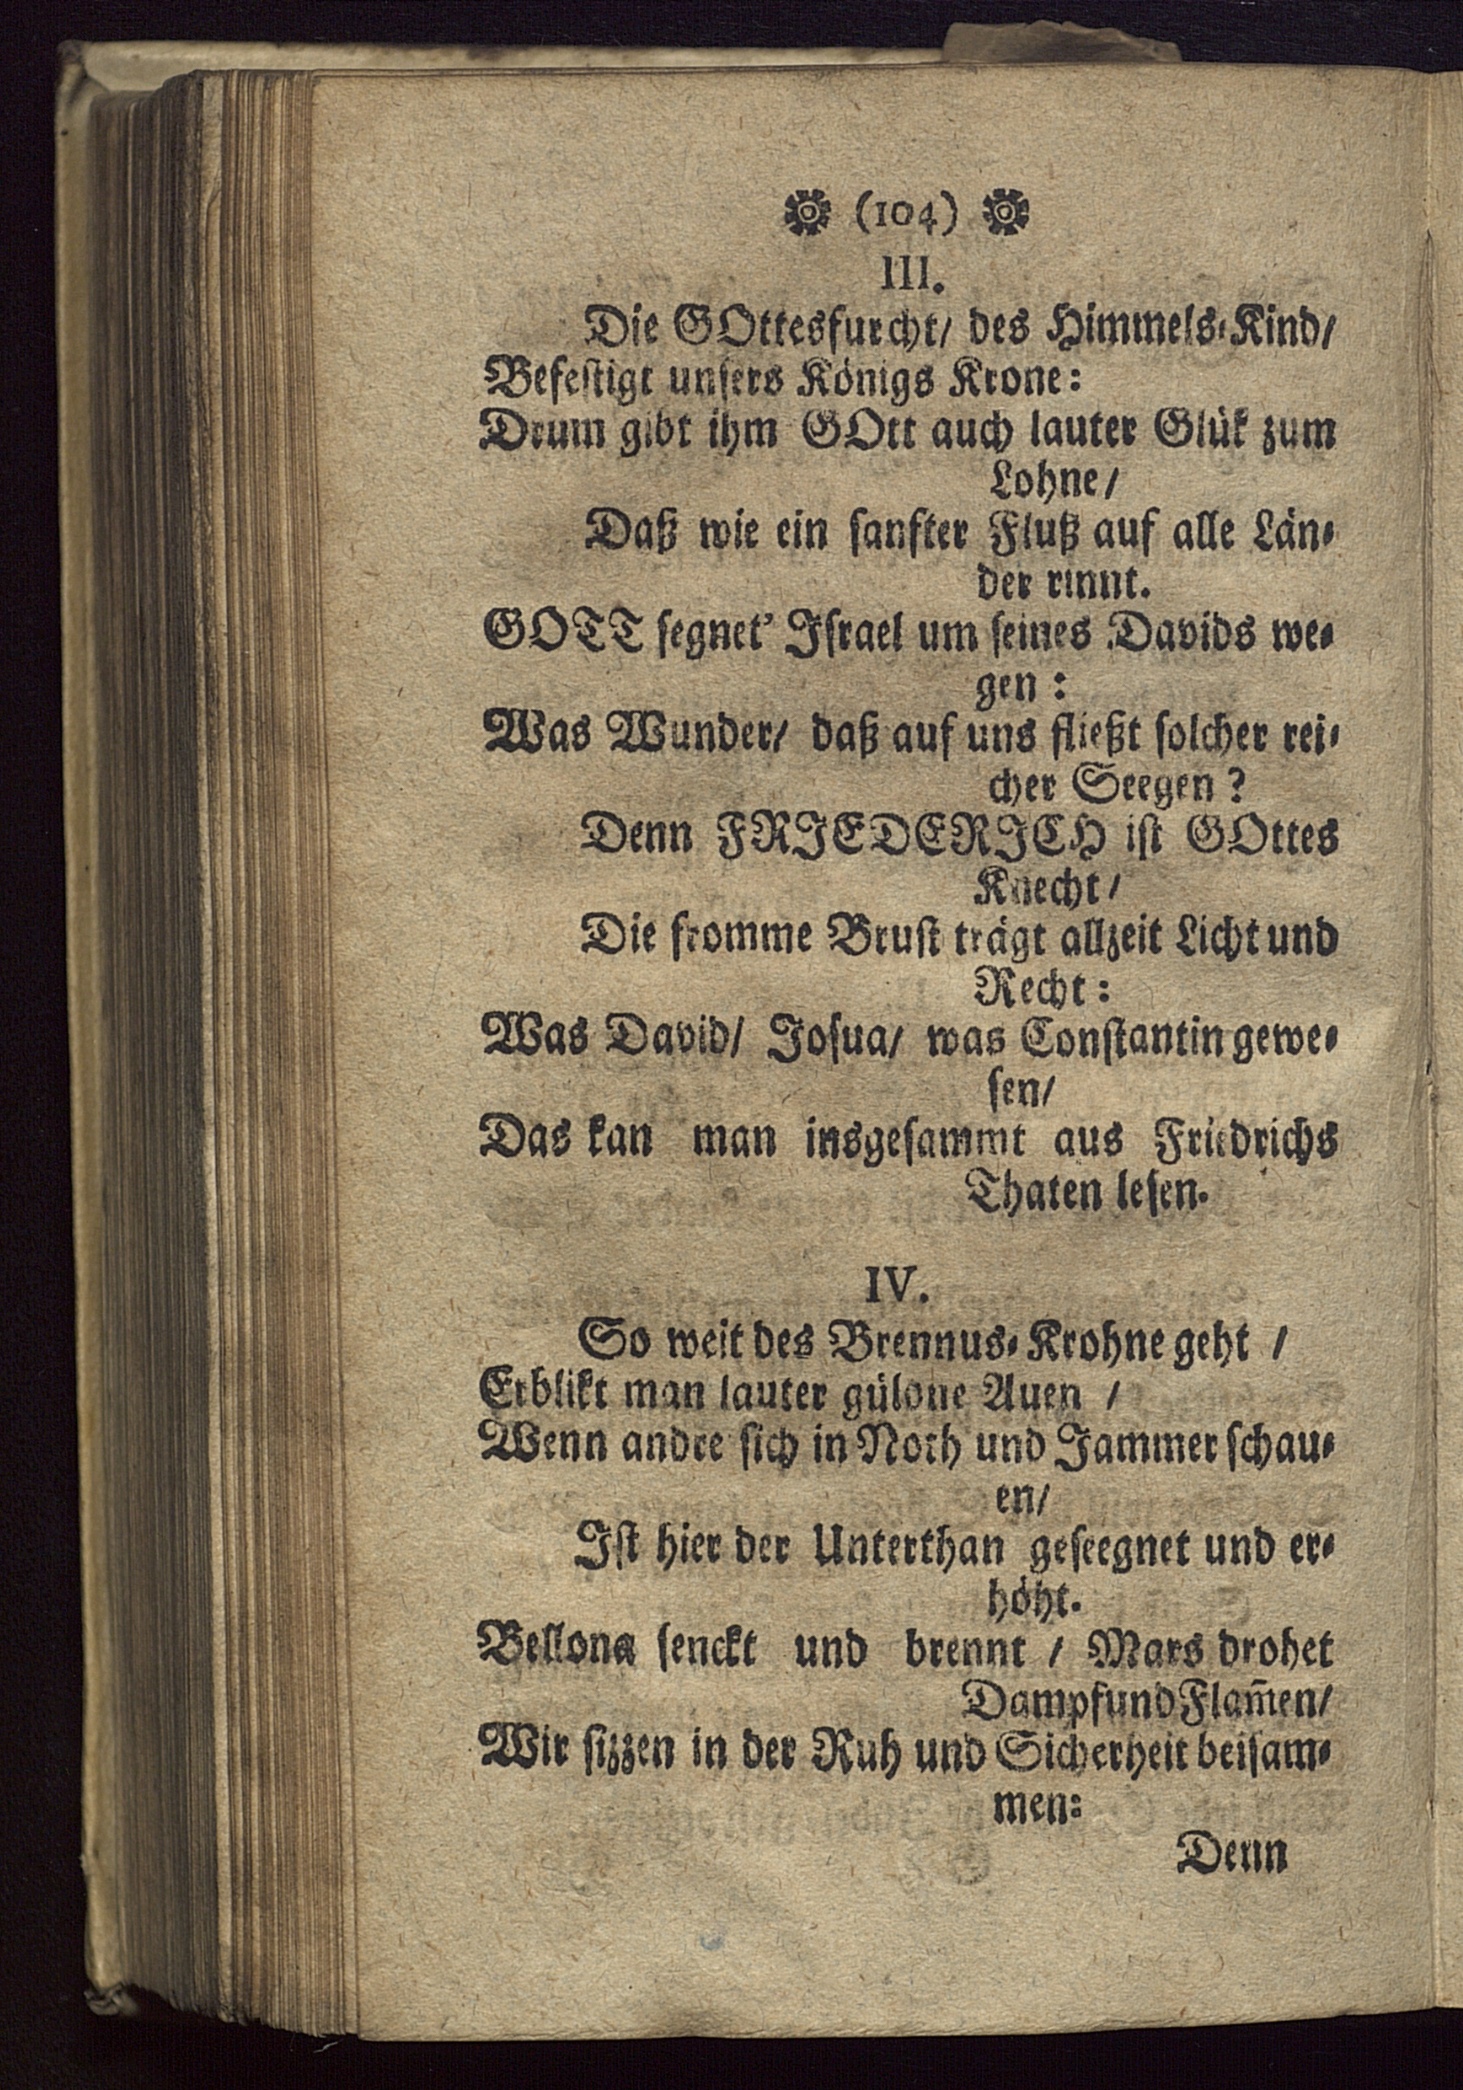 (104)
III.
Die GOttesfurcht/ des Himmels-Kind/
Befestigt unsers Königs Krone:
Drum gibt ihm GOtt auch lauter Glük zum
Lohne/
Daß wie ein sanfter Fluß auf alle Län-
der rinnt.
GOTT segnet' Israel um seines Davids we-
gen:
Was Wunder/ daß auf uns fließt solcher rei-
cher Seegen?
Denn FRIEDERICH ist GOttes
Knecht/
Die fromme Brust trägt allzeit Licht und
Recht:
Was David/ Josua/ was Constantin gewe-
sen/
Das kan man insgesammt aus Friedrichs
Thaten lesen.
IV.
So weit des Brennus-Krohne geht /
Erblikt man lauter güldne Auen /
Wenn andre sich in Noth und Jammer schau-
en/
Ist hier der Unterthan geseegnet und er-
höht.
Bellona senckt und brennt / Mars drohet
Dampf und Flam̃en/
Wir sizzen in der Ruh und Sicherheit beisam-
men:
Denn